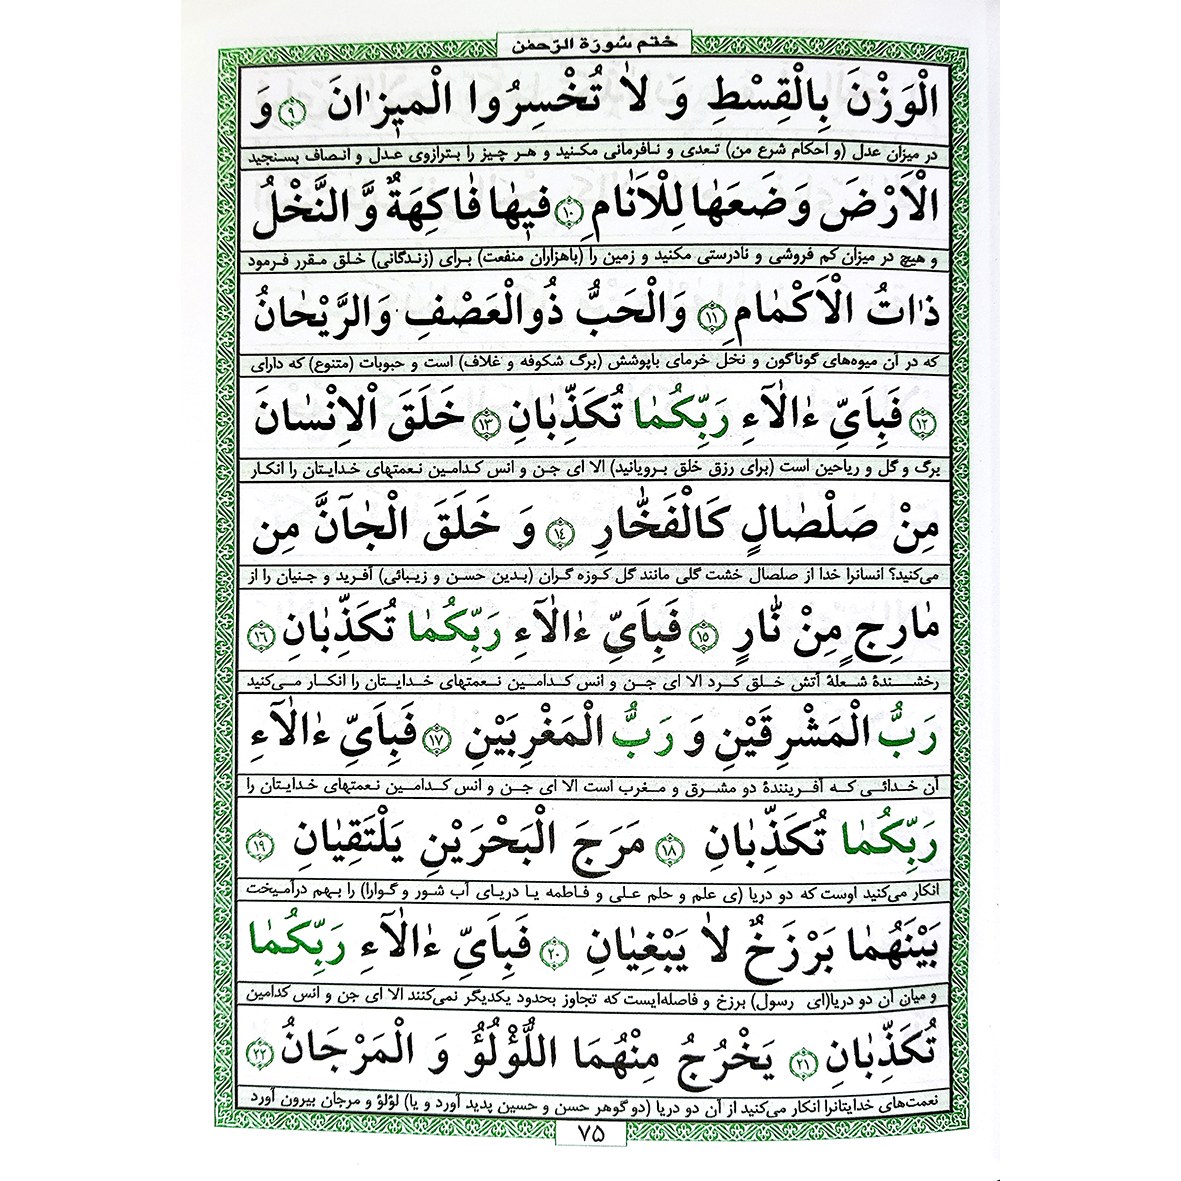 ختم سُورَة الرّحمٰن
الْوَزْنَ بِالْقِسْطِ وَ لاٰ تُخْسِرُوا الْمیٖزٰانَ ﴿٩﴾ وَ
در میزان عدل (و احکام شرع من) تعدی و نافرمانی مکنید و هر چیز را بترازوی عدل و انصاف بسنجید
الْاَرْضَ وَضَعَهٰا لِلْاَنٰامِ ﴿١٠﴾ فیٖهٰا فٰاکِهَةٌ وَّ النَّخْلُ
و هیچ در میزان کم فروشی و نادرستی مکنید و زمین را (باهزاران منفعت) برای (زندگانی) خلق مقرر فرمود
ذٰاتُ الْاَکْمٰامِ ﴿١١﴾ وَالْحَبُّ ذُوالْعَصْفِ وَالرَّیْحٰانُ
که در آن میوه‌های گوناگون و نخل خرمای باپوشش (برگ شکوفه و غلاف) است و حبوبات (متنوع) که دارای
﴿١٢﴾ فَبِاَیِّ ءٰالٰٓاءِ رَبِّکُمٰا تُکَذِّبٰانِ ﴿١٣﴾ خَلَقَ الْاِنْسٰانَ
برگ و گل و ریاحین است (برای رزق خلق برویانید) الا ای جن و انس کدامین نعمتهای خدایتان را انکار
مِنْ صَلْصٰالٍ کَالْفَخّٰارِ ﴿١٤﴾ وَ خَلَقَ الْجٰآنَّ مِن
می‌کنید؟ انسانرا خدا از صلصال خشت گلی مانند گل کوزه گران (بدین حسن و زیبائی) آفرید و جنیان را از
مٰارِجٍ مِنْ نّٰارٍ ﴿١٥﴾ فَبِاَیِّ ءٰالٰٓاءِ رَبِّکُمٰا تُکَذِّبٰانِ ﴿١٦﴾
رخشندهٔ شعلهٔ آتش خلق کرد الا ای جن و انس کدامین نعمتهای خدایتان را انکار می‌کنید
رَبُّ الْمَشْرِقَیْنِ وَ رَبُّ الْمَغْرِبَیْنِ ﴿١٧﴾ فَبِاَیِّ ءٰالٰٓاءِ
آن خدائی که آفرینندهٔ دو مشرق و مغرب است الا ای جن و انس کدامین نعمتهای خدایتان را
رَبِّکُمٰا تُکَذِّبٰانِ ﴿١٨﴾ مَرَجَ الْبَحْرَیْنِ یَلْتَقِیٰانِ ﴿١٩﴾
انکار می‌کنید اوست که دو دریا (ی علم و حلم علی و فاطمه یا دریای آب شور و گوارا) را بهم درآمیخت
بَیْنَهُمٰا بَرْزَخٌ لاٰ یَبْغِیٰانِ ﴿٢٠﴾ فَبِاَیِّ ءٰالٰٓاءِ رَبِّکُمٰا
و میان آن دو دریا(ای رسول) برزخ و فاصله‌ایست که تجاوز بحدود یکدیگر نمی‌کنند الا ای جن و انس کدامین
تُکَذِّبٰانِ ﴿٢١﴾ یَخْرُجُ مِنْهُمَا اللُّؤْلُؤُ وَ الْمَرْجَانُ ﴿٢٢﴾
نعمت‌های خدایتانرا انکار می‌کنید از آن دو دریا (دو گوهر حسن و حسین پدید آورد و یا) لؤلؤ و مرجان بیرون آورد
٧۵